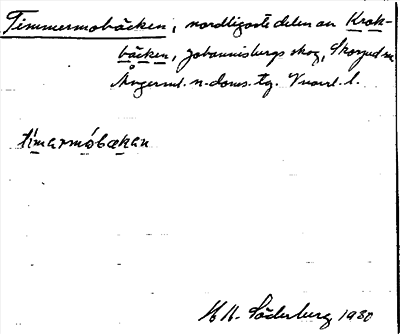 Timmermobäcken, nordligaste delen av Krok-
bäcken, Johannisbergs skog, Skorped sn
Ångerml. n. doms. tg. Vnorrl. l.
timarmóbækan
H. H. Söderberg 1930